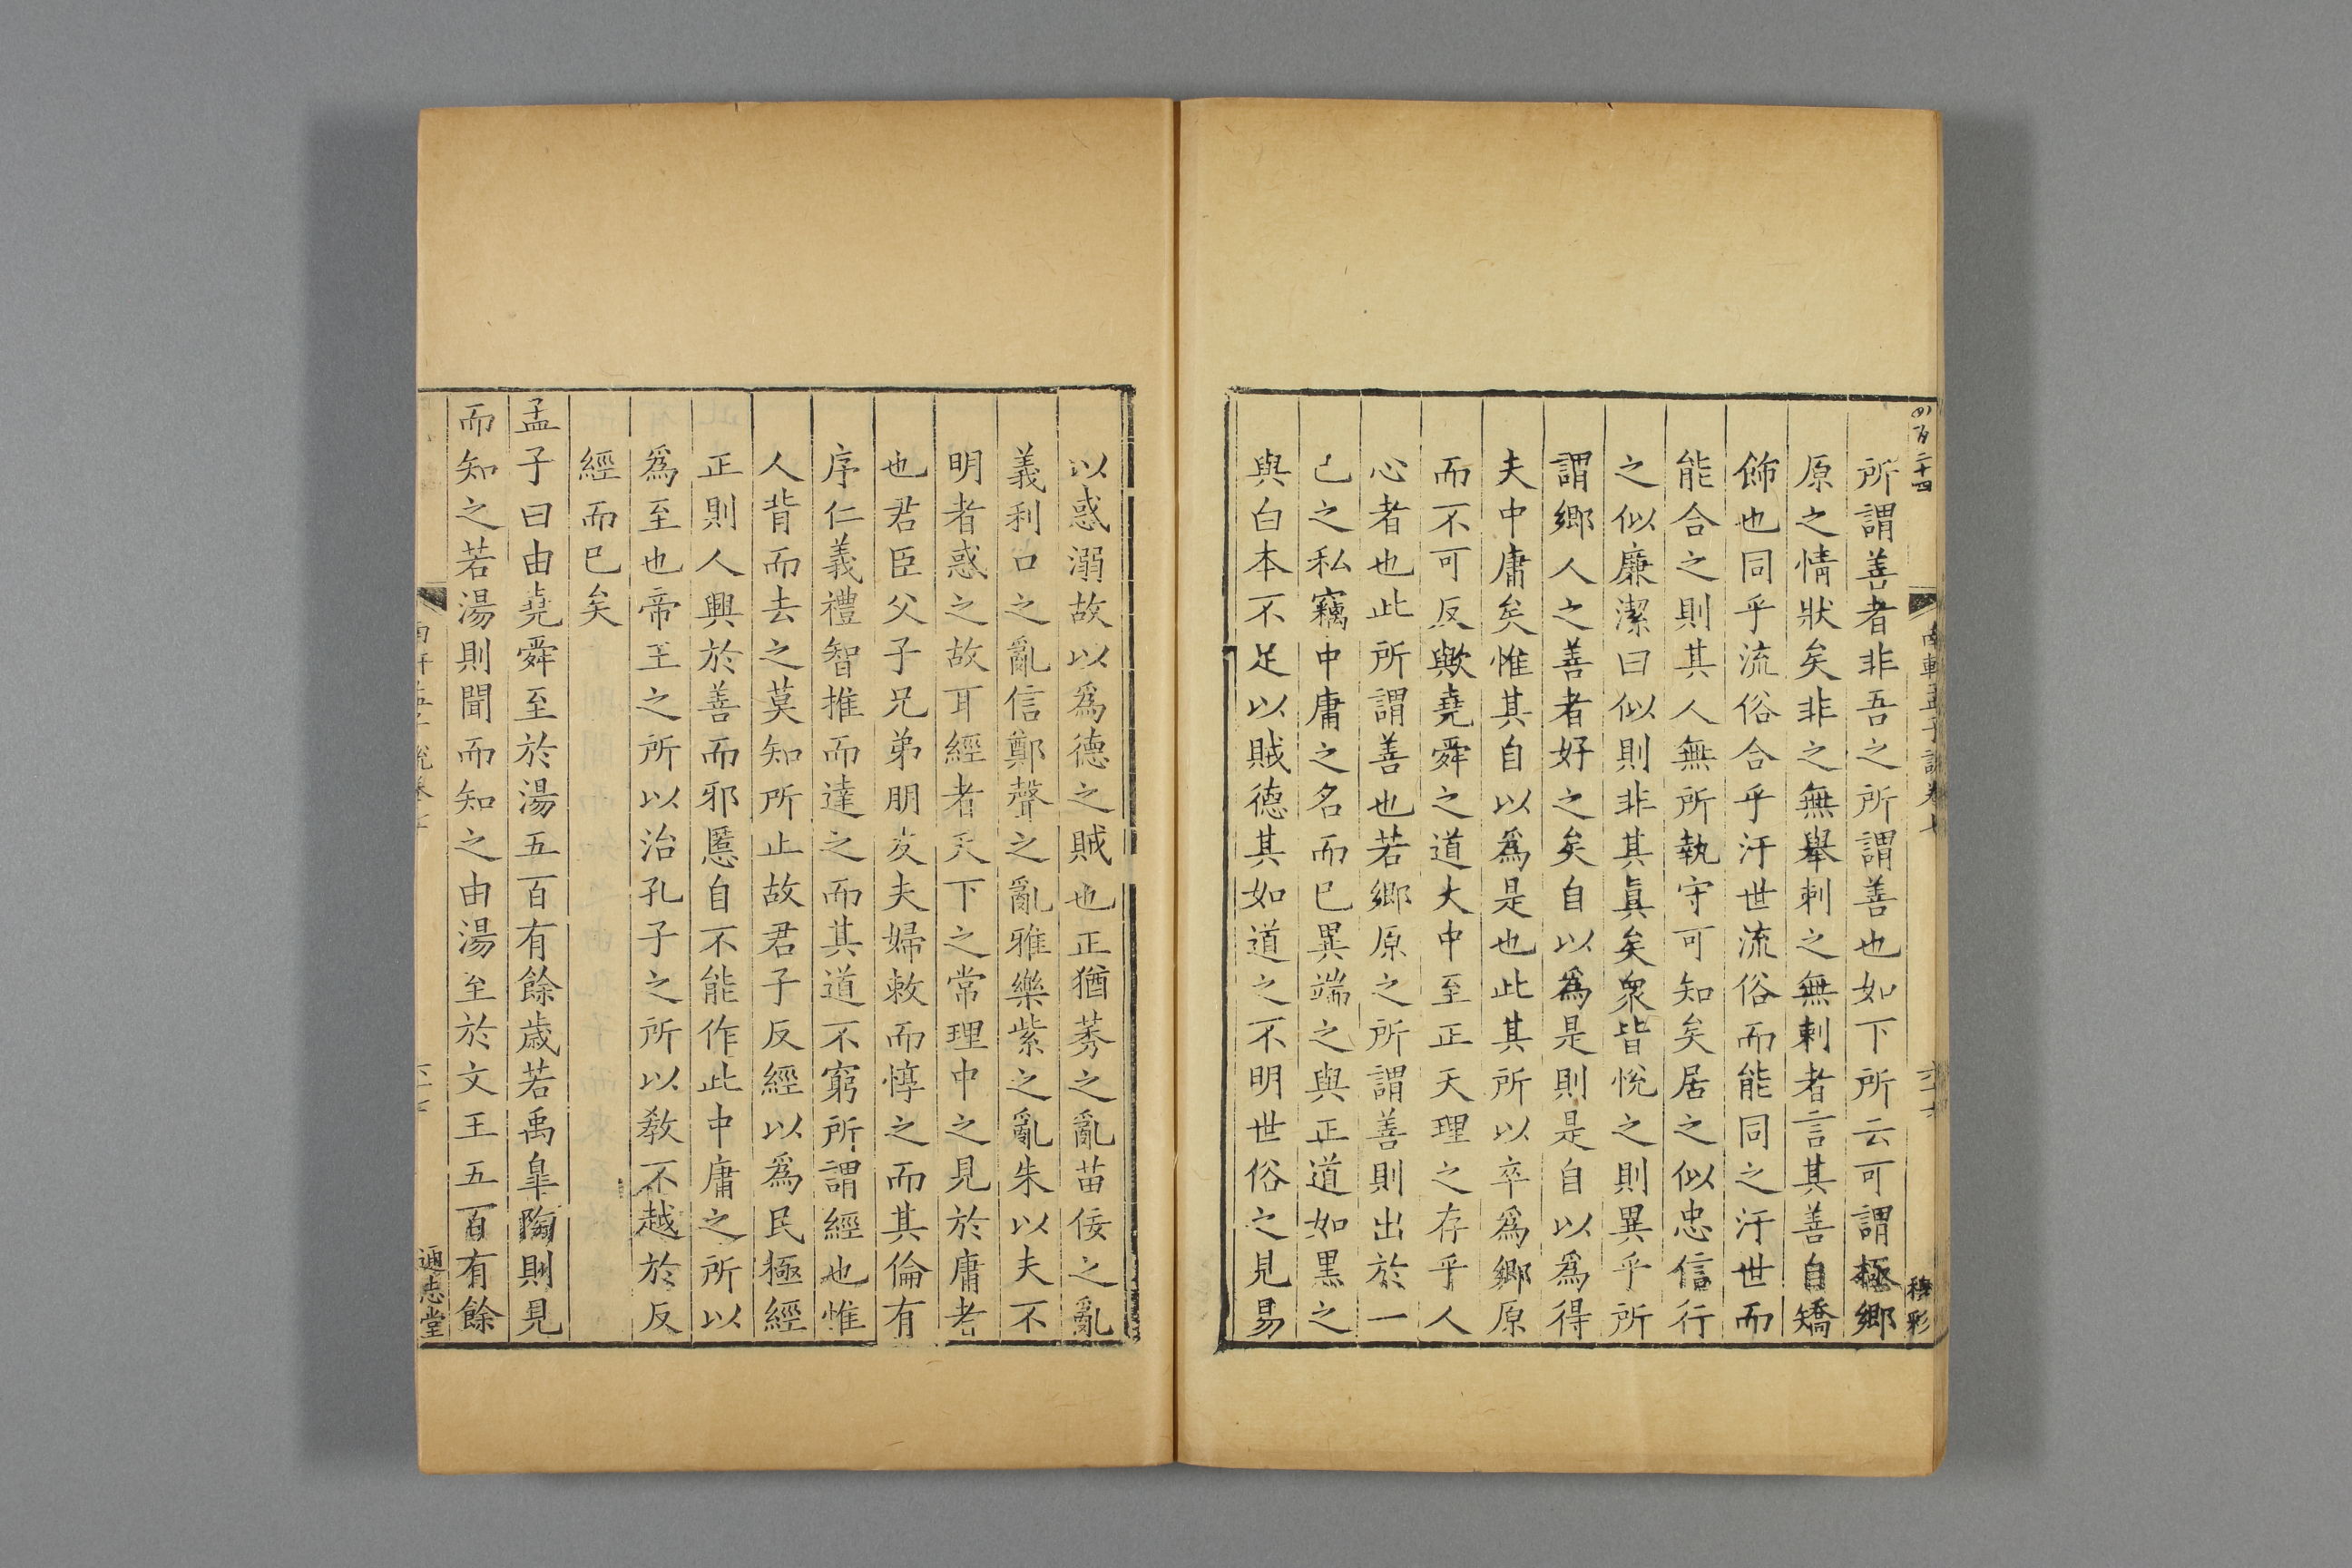 四百二十四
南軒孟子說卷七
六十七
穆彩
所謂善者非吾之所謂善也如下所云可謂極鄉
原之情狀矣非之無舉刺之無刺者言其善自矯
飾也同乎流俗合乎汙世流俗而能同之汙世而
能合之則其人無所執守可知矣居之似忠信行
之似廉潔曰似則非其眞矣衆皆悅之則異乎所
謂鄉人之善者好之矣自以爲是則是自以爲得
夫中庸矣惟其自以爲是也此其所以卒爲鄉原
而不可反歟堯舜之道大中至正天理之存乎人
心者也此所謂善也若鄉原之所謂善則出於一
己之私竊中庸之名而已異端之與正道如黑之
與白本不足以賊德其如道之不明世俗之見易
以惑溺故以爲德之賊也正猶莠之亂苗佞之亂
義利口之亂信鄭聲之亂雅樂紫之亂朱以夫不
明者惑之故耳經者天下之常理中之見於庸者
也君臣父子兄弟朋友夫婦敕而惇之而其倫有
序仁義禮智推而達之而其道不窮所謂經也惟
人背而去之莫知所止故君子反經以爲民極經
正則人興於善而邪慝自不能作此中庸之所以
爲至也帝王之所以治孔子之所以教不越於反
經而已矣
孟子曰由堯舜至於湯五百有餘歲若禹皐陶則見
而知之若湯則聞而知之由湯至於文王五百有餘
通志堂